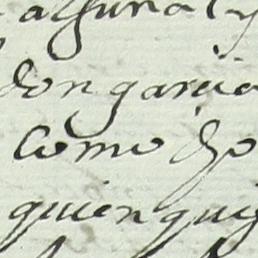 alguna y
don garcia
como dho
quien qui